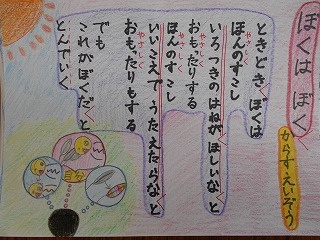 ぼくは ぼく
からすえいぞう
ときどき ぼくは
やさしく
ほんのすこし
いろつきのはねが ほしいな と
やさしく
おもったりする
やさしく
ほんのすこし
いいこえで うたえたらな と
やさしく
おもったりもする
でも
これが ぼくだ と
とんでいく
自分